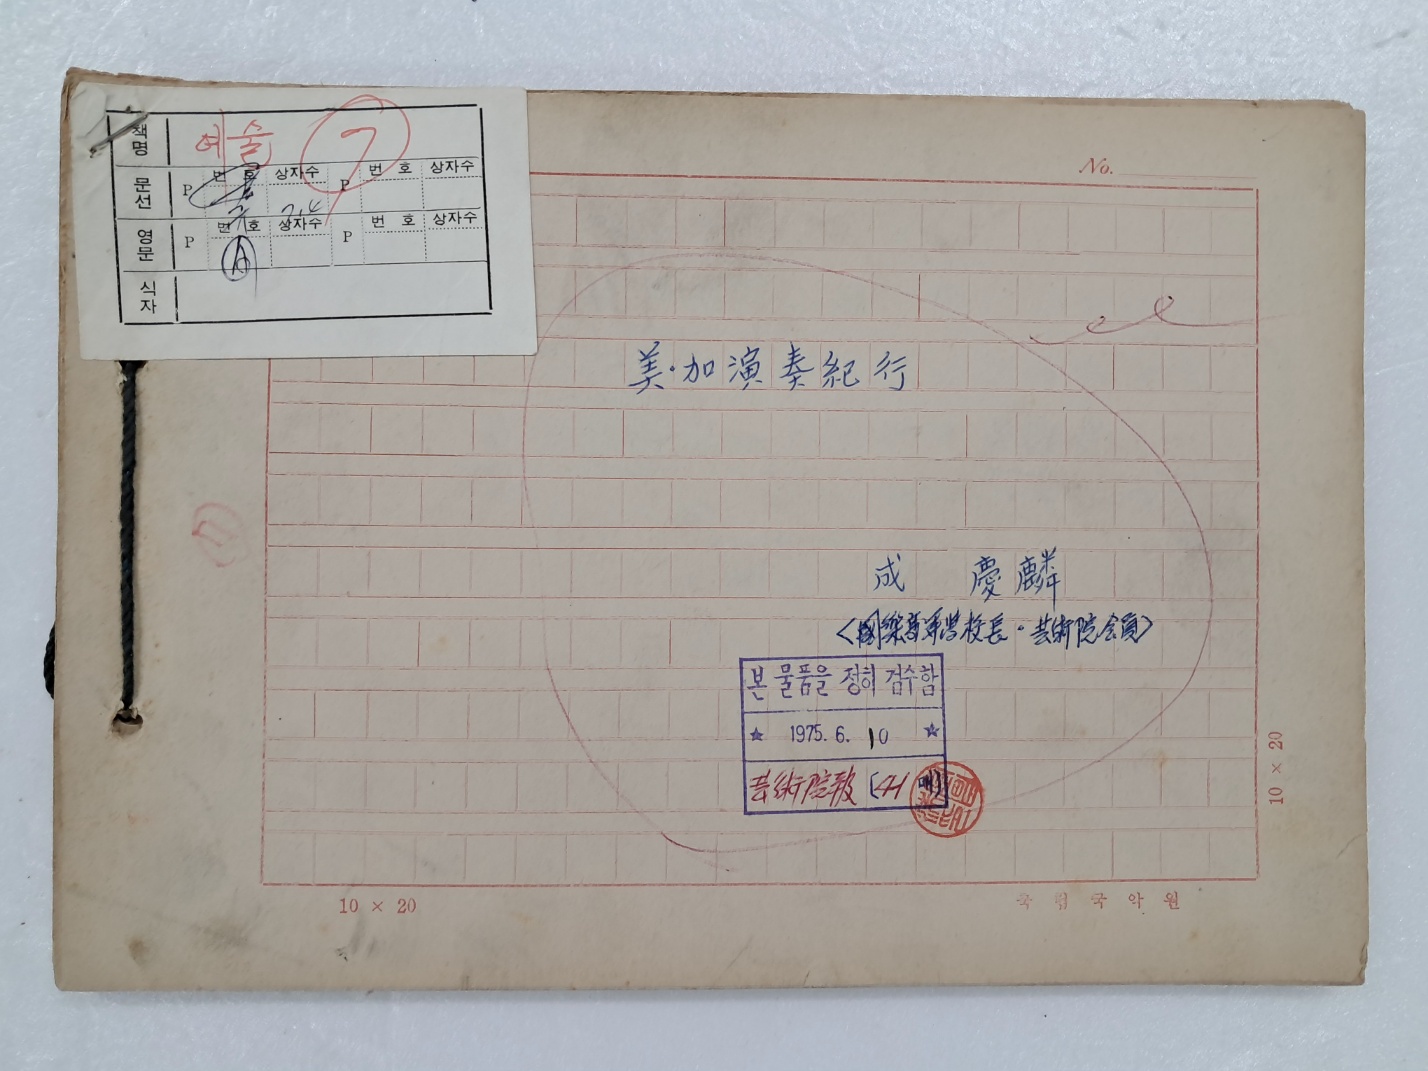 책명 예술 7
문선 P 번호 상자수 P 번호 상자수
영문 P 번호 상자수 P 번호 상자수
식자
No.
美·加演奏紀行
成 慶麟
<國樂高等学校長·芸術院会員>
본 물품을 정히 검수함
1975. 6. 10
芸術院報 (41매)
10 × 20
10 × 20
국립국악원